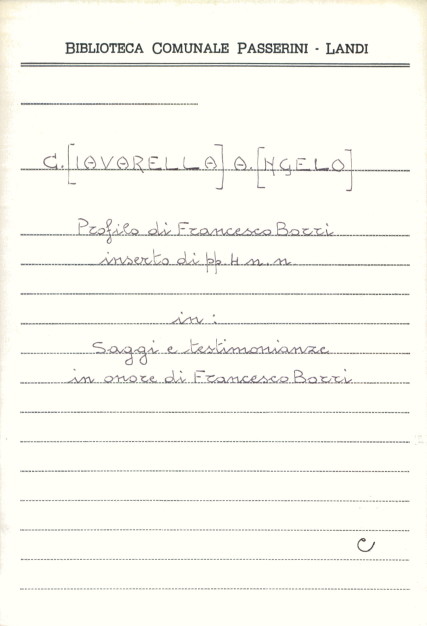 BIBLIOTECA COMUNALE PASSERINI - LANDI
C.[IAVARELLA] A.[NGELO]
Profilo di Francesco Borri
inserto di pp. 4 n. n.
in :
Saggi e testimonianze
in onore di Francesco Borri
C